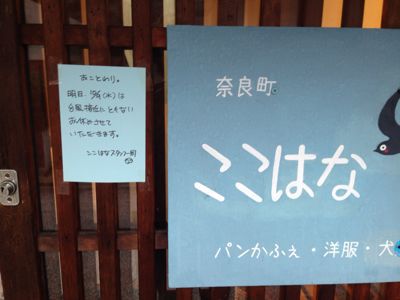 おことわり。
明日、(水)は
台風接近にともない
お休みさせて
いただきます。
ここはなスタッフ一同
奈良町
ここはな
パンかふぇ・洋服・犬